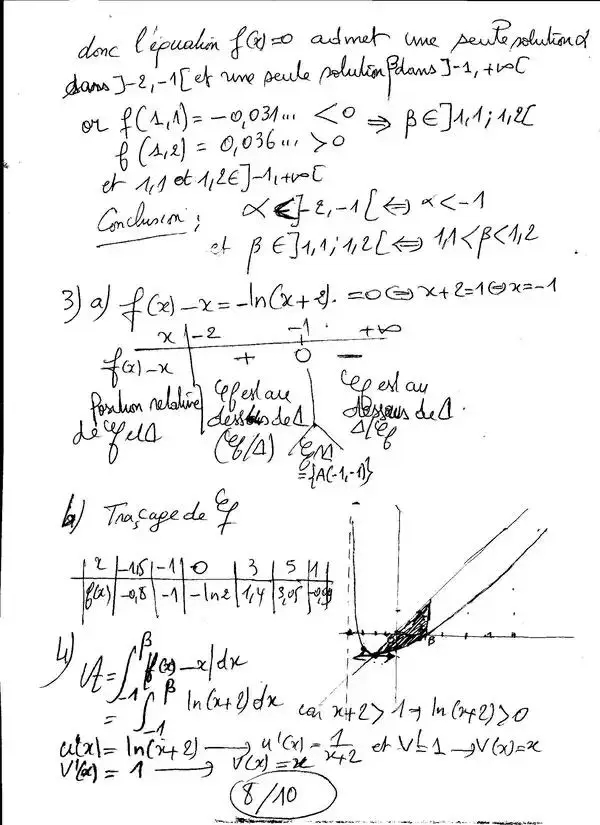 donc l'équation f(x)=0 admet une seule solution α
dans ]-2,-1[ et une seule solution β dans ]-1,+∞[
or f(1,1) = -0,031... < 0 ⇒ β ∈ ]1,1 ; 1,2[
f(1,2) = 0,036... > 0
et 1,1 et 1,2 ∈ ]-1,+∞[
Conclusion : α ∈ ]-2,-1[ ⇔ α < -1
et β ∈ ]1,1 ; 1,2[ ⇔ 1,1 < β < 1,2
3) a) f(x) - x = -ln(x+2). = 0 ⇔ x+2 = 1 ⇔ x = -1
x | -2 -1 +∞
f(x) - x + 0 -
Position relative de Cf et Δ
Cf est au dessus de Δ (Cf/Δ)
Cf∩Δ = {A(-1,-1)}
Cf est au dessous de Δ Δ/Cf
b) Traçage de Cf
x | -1,5 | -1 | 0 | 3 | 5 | 1
f(x) | -0,8 | -1 | -ln2 | 1,4 | 3,05 | -0,09
β
4) A = ∫_{-1}^{β} |f(x) - x| dx
= ∫_{-1}^{β} ln(x+2) dx car x+2 > 1 → ln(x+2) > 0
u(x) = ln(x+2) → u'(x) = 1/(x+2) et V' = 1 → V(x) = x
V'(x) = 1 → V(x) = x
8/10